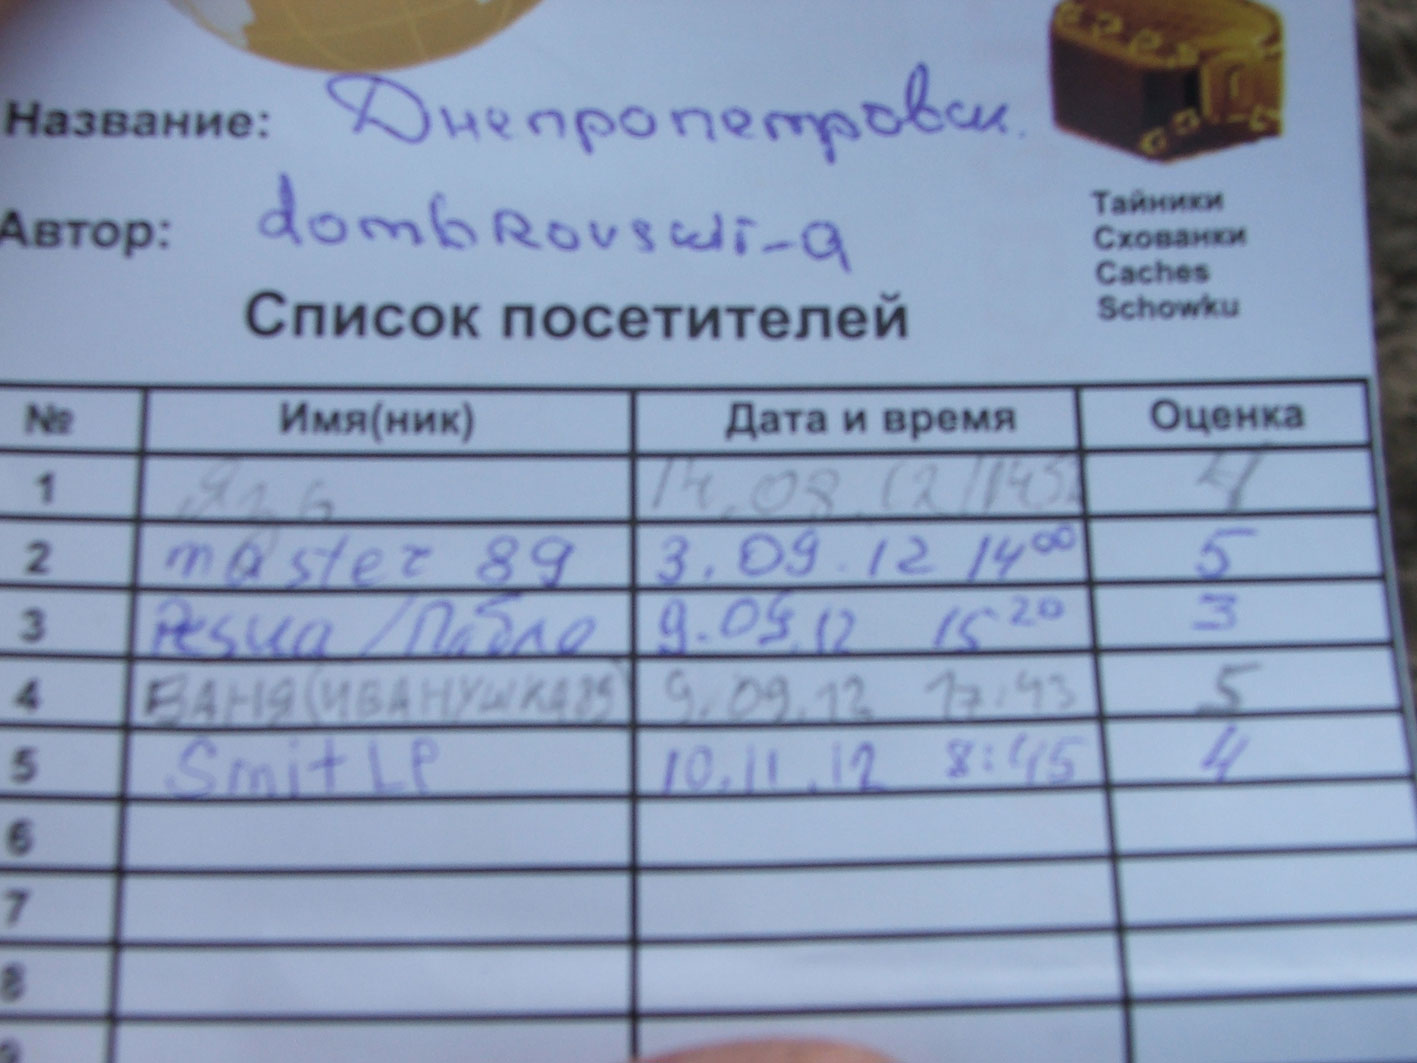 Название: Днепропетровск.
Автор: dombrovskii-a
Тайники
Схованки
Caches
Schowku
Список посетителей
№ Имя(ник) Дата и время Оценка
1 14.08.12 4
2 master 89 3.09.12 14 00 5
3 /Пабло 9.09.12 15 20 3
4 ВАНЯ(ИВАНУШКА89) 9.09.12 17:43 5
5 Smit LP 10.11.12 8:45 4
6
7
8
9